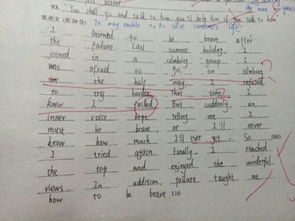 "You shall go and talk to him you'll help him if you talk to him
It may enable
I learned to be brave after
the failure Last summer holiday, I
joined in a climbing group. I
was afraid to go on climbing
the half way
to try harder That time I
knew I failed But suddenly an
inner voice kept telling me I
must be brave, or I'll never
know how much I'll ever get. So
I tried again. Finally I reached
the top and enjoyed the wonderful
views. In addition, failure taught me
how to be brave